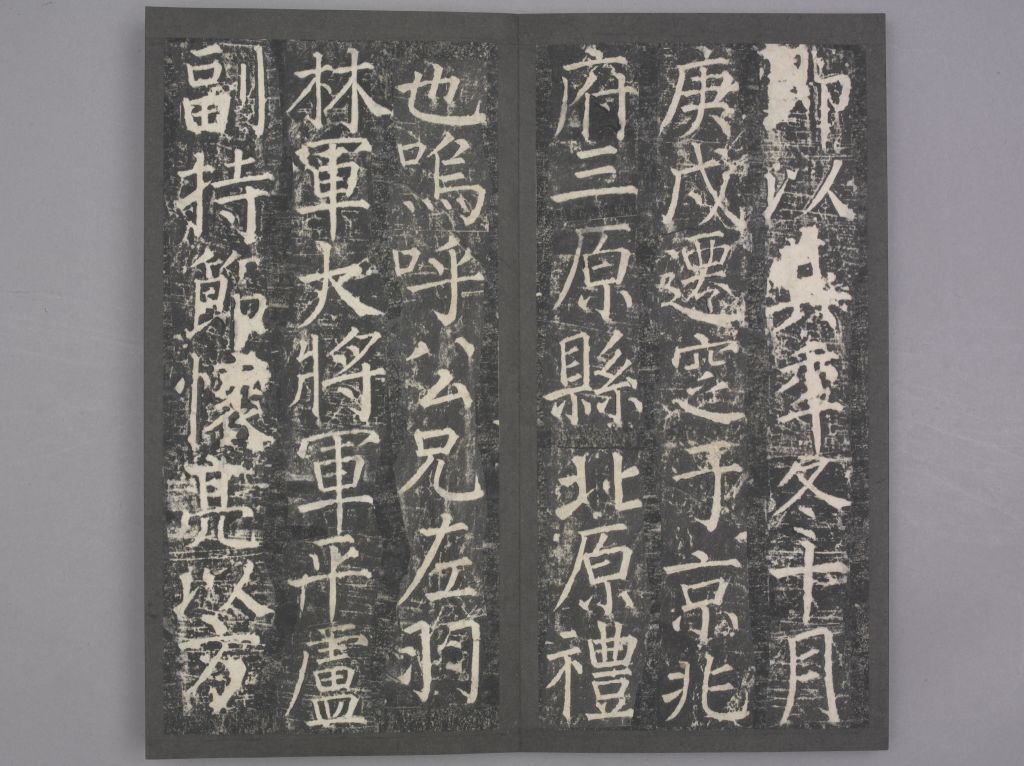 即以其年冬十月
庚戌遷窆于京兆
府三原縣北原禮
也嗚呼公兄左羽
林軍大將軍平盧
副持節懷亮以方